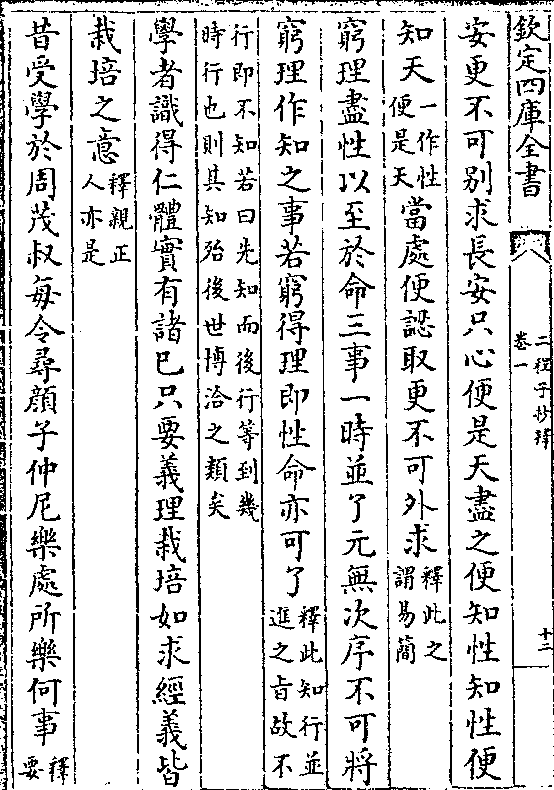 欽定四庫全書
二程子抄釋
卷一
十二
安更不可别求長安只心便是天盡之便知性知性便
知天一作性便是天當處便認取更不可外求釋此之謂易簡
窮理盡性以至於命三事一時並了元無次序不可將
窮理作知之事若窮得理即性命亦可了釋此知行並進之旨故不
行即不知若曰先知而後行等到幾時行也則其知殆後世博洽之類矣
學者識得仁體實有諸己只要義理栽培如求經義皆
栽培之意釋親正人亦是
昔受學於周茂叔每令尋顔子仲尼樂處所樂何事釋要